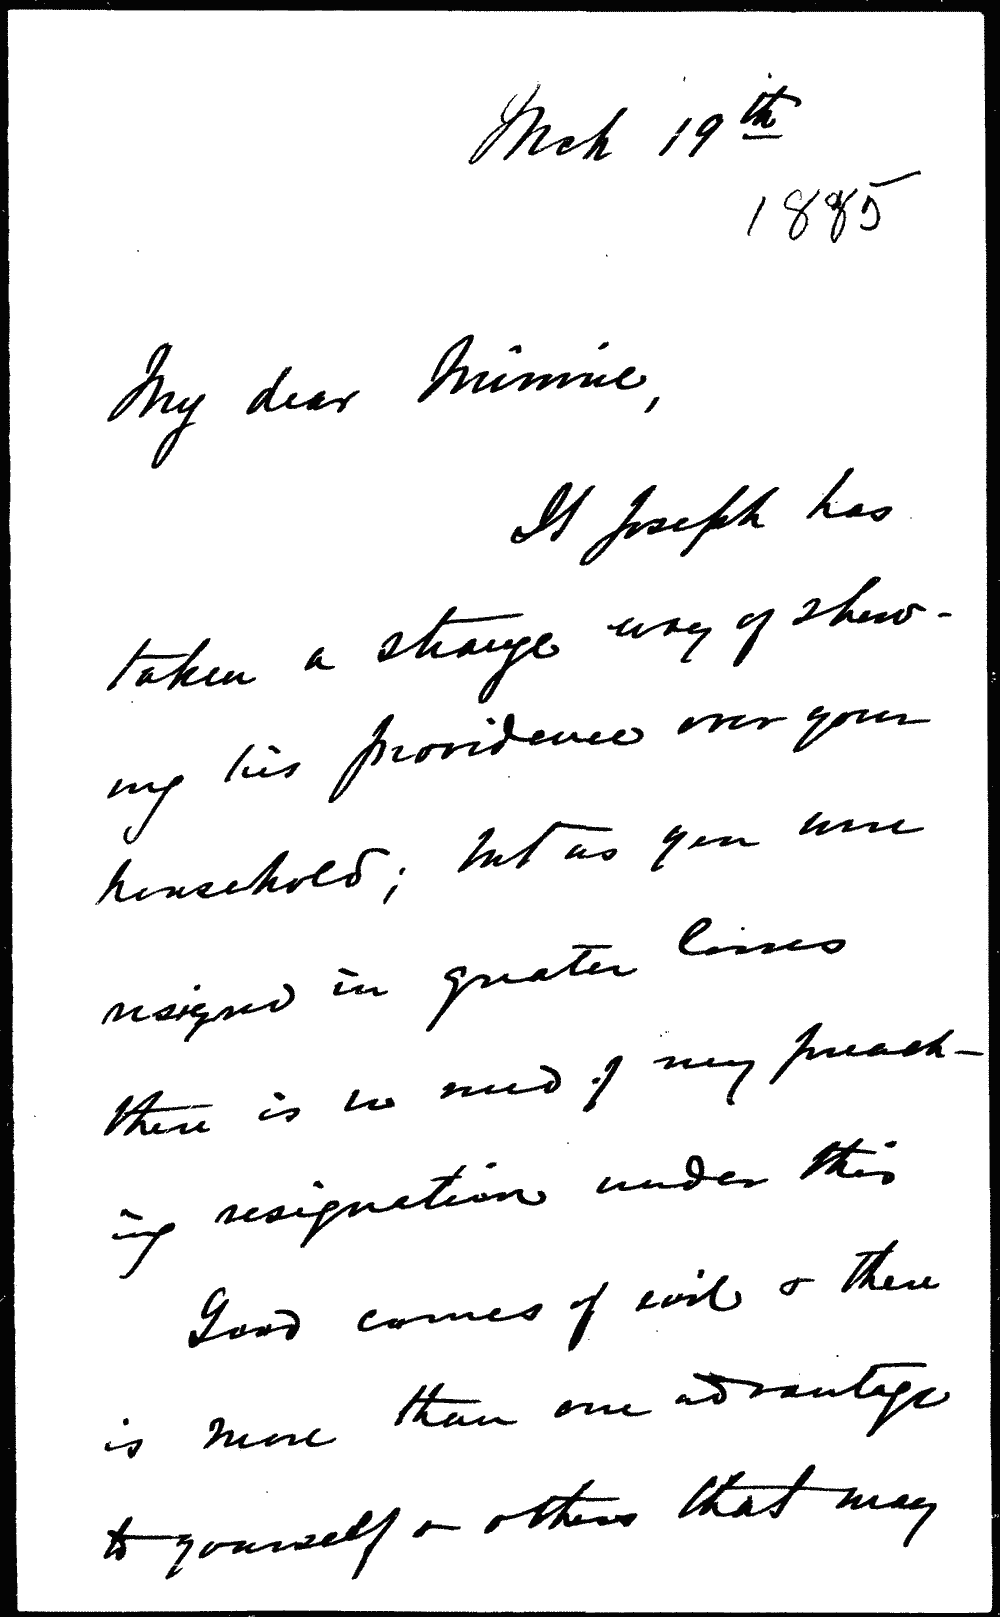 Mch 19th
1885
My dear Minnie,
St Joseph has
taken a strange way of shew-
ing his providence over your
household; but as you were
resigned in greater losses
there is no need of my preach-
ing resignation under this
Good comes of evil & there
is more than one advantage
to yourself & others that may